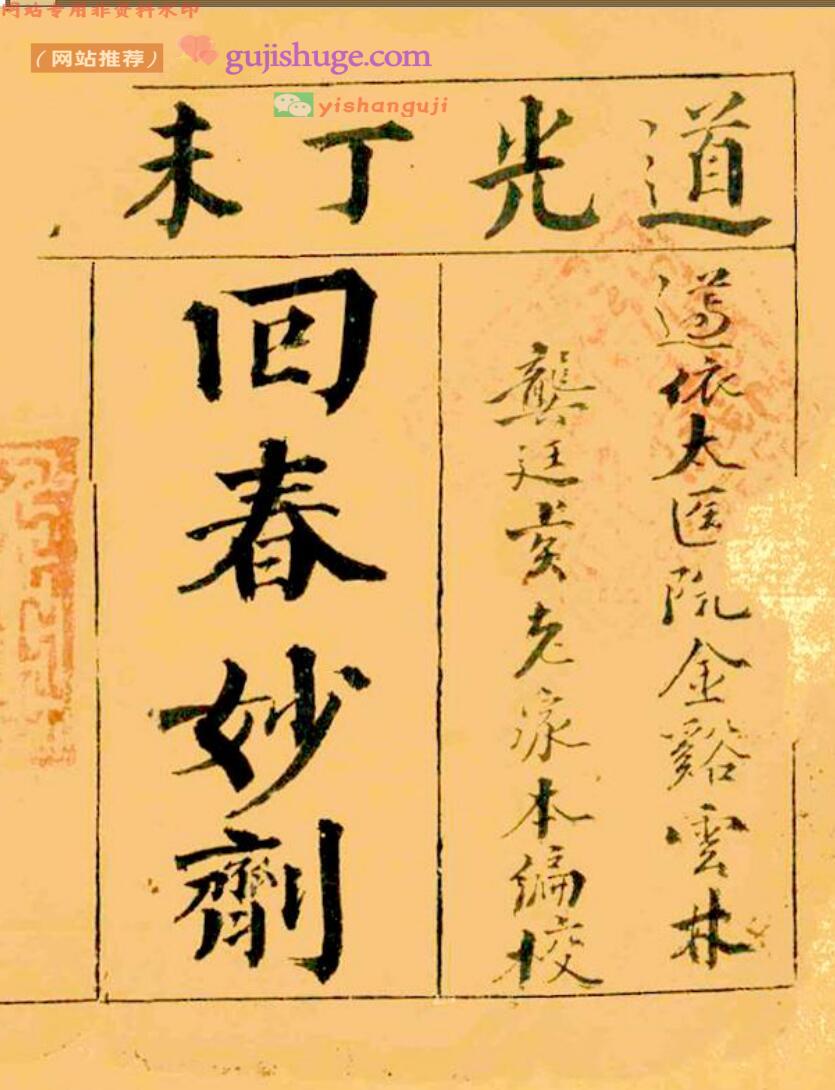 网站专用非资料水印
（网站推荐） gujishuge.com
yishanguji
道光丁未
遵依太医院金谿雲林
龔廷賢老家本編校
回春妙劑